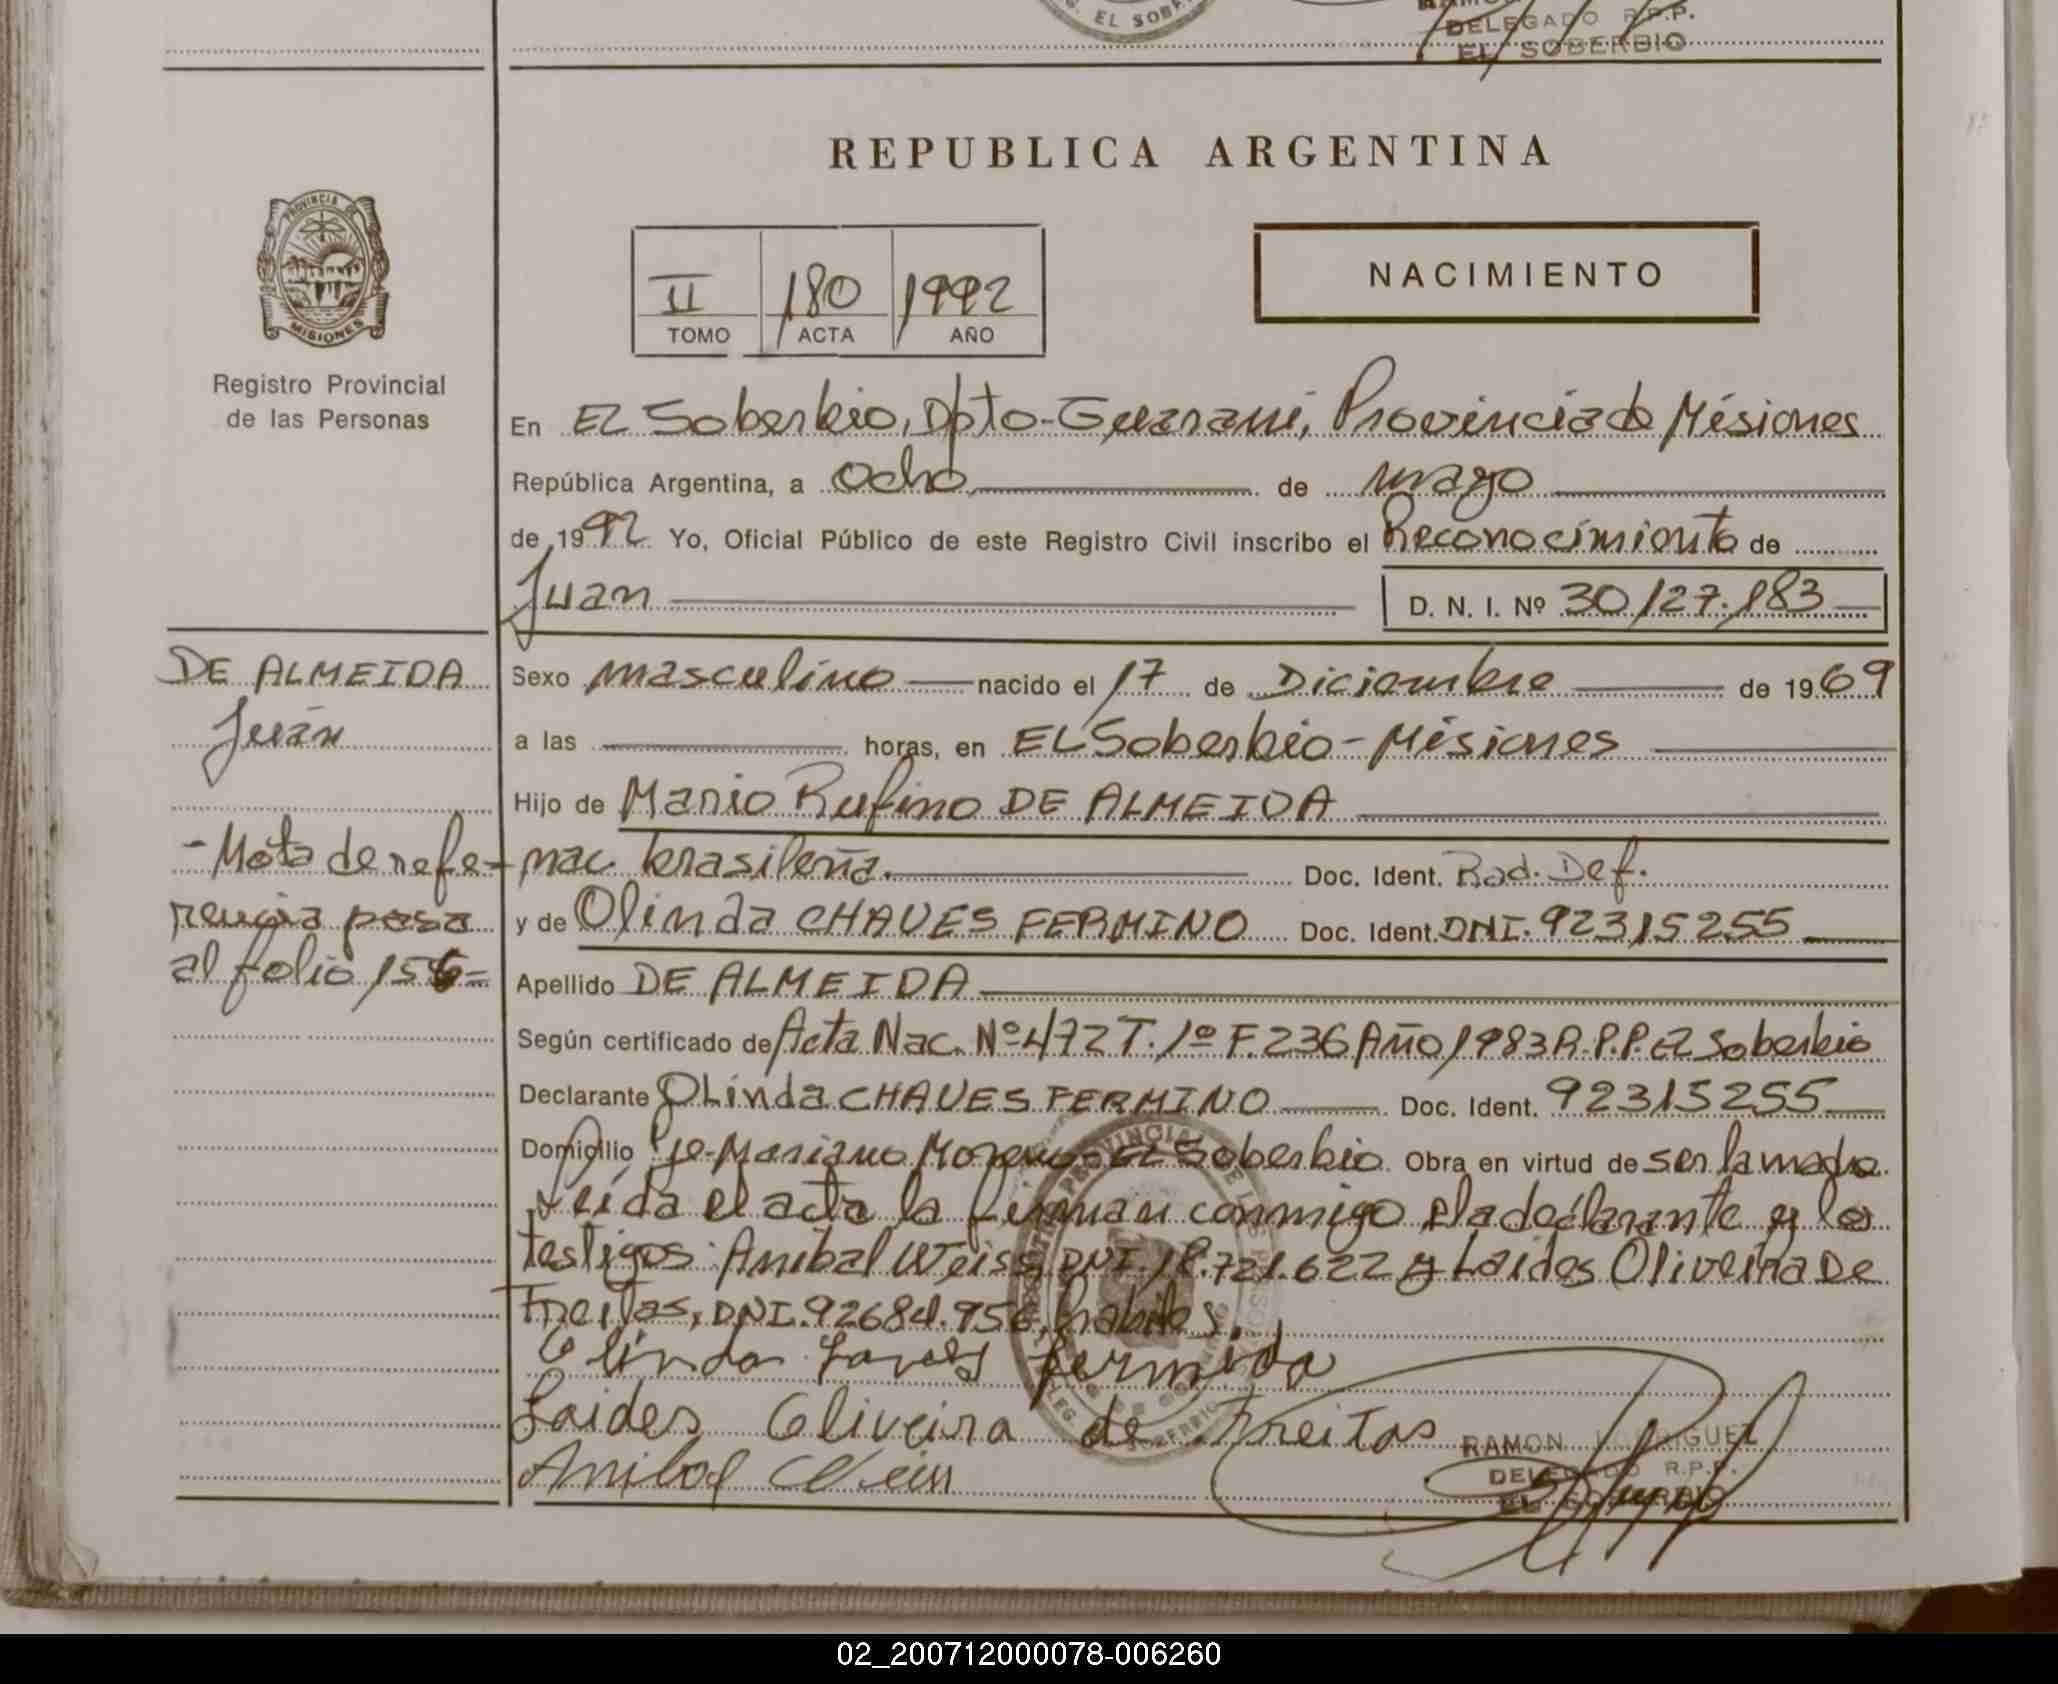 G. EL SOBER
DELEGADO R.P.P.
EL SOBERBIO
REPUBLICA ARGENTINA
PROVINCIA DE
MISIONES
Registro Provincial
de las Personas
II 180 1992
TOMO ACTA AÑO
NACIMIENTO
En EL Soberbio, Dpto-Guarani, Provincia de Misiones
República Argentina, a ocho de mayo
de 1992 Yo, Oficial Público de este Registro Civil inscribo el Reconocimiento de
Juan D. N. I. Nº 30127.183
DE ALMEIDA
Juan
-Nota de refe-
rencia pasa
al folio 156=
Sexo masculino nacido el 17 de Diciembre de 1969
a las horas, en EL Soberbio-Misiones
Hijo de Mario Rufino DE ALMEIDA
nac. brasileña. Doc. Ident. Rad. Def.
y de Olinda CHAVES FERMINO Doc. Ident. DNI. 92315255
Apellido DE ALMEIDA
Según certificado de Acta Nac. Nº 472 T. 1º F. 236 Año 1983 R.P.P. El Soberbio
Declarante OLinda CHAVES FERMINO Doc. Ident. 92315255
Domicilio Pje-Mariano Moreno-EL Soberbio. Obra en virtud de ser la madre
Leida el acta la firman conmigo la declarante y los
testigos: Anibal Weiss, DNI. 18.721.622 y Laides Oliveira De
Freitas, DNI. 92684.956, habiles.
Laides Oliveira de Freitas
Anibal Weiss
RAMON RODRIGUEZ
DELEGADO R.P.P.
EL SOBERBIO
02_200712000078-006260